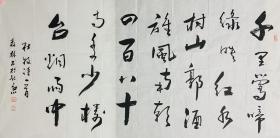 千里鶯啼
綠映紅水
村山郭酒
旗風南朝
四百八十
寺多少樓
台烟雨中
杜牧詩